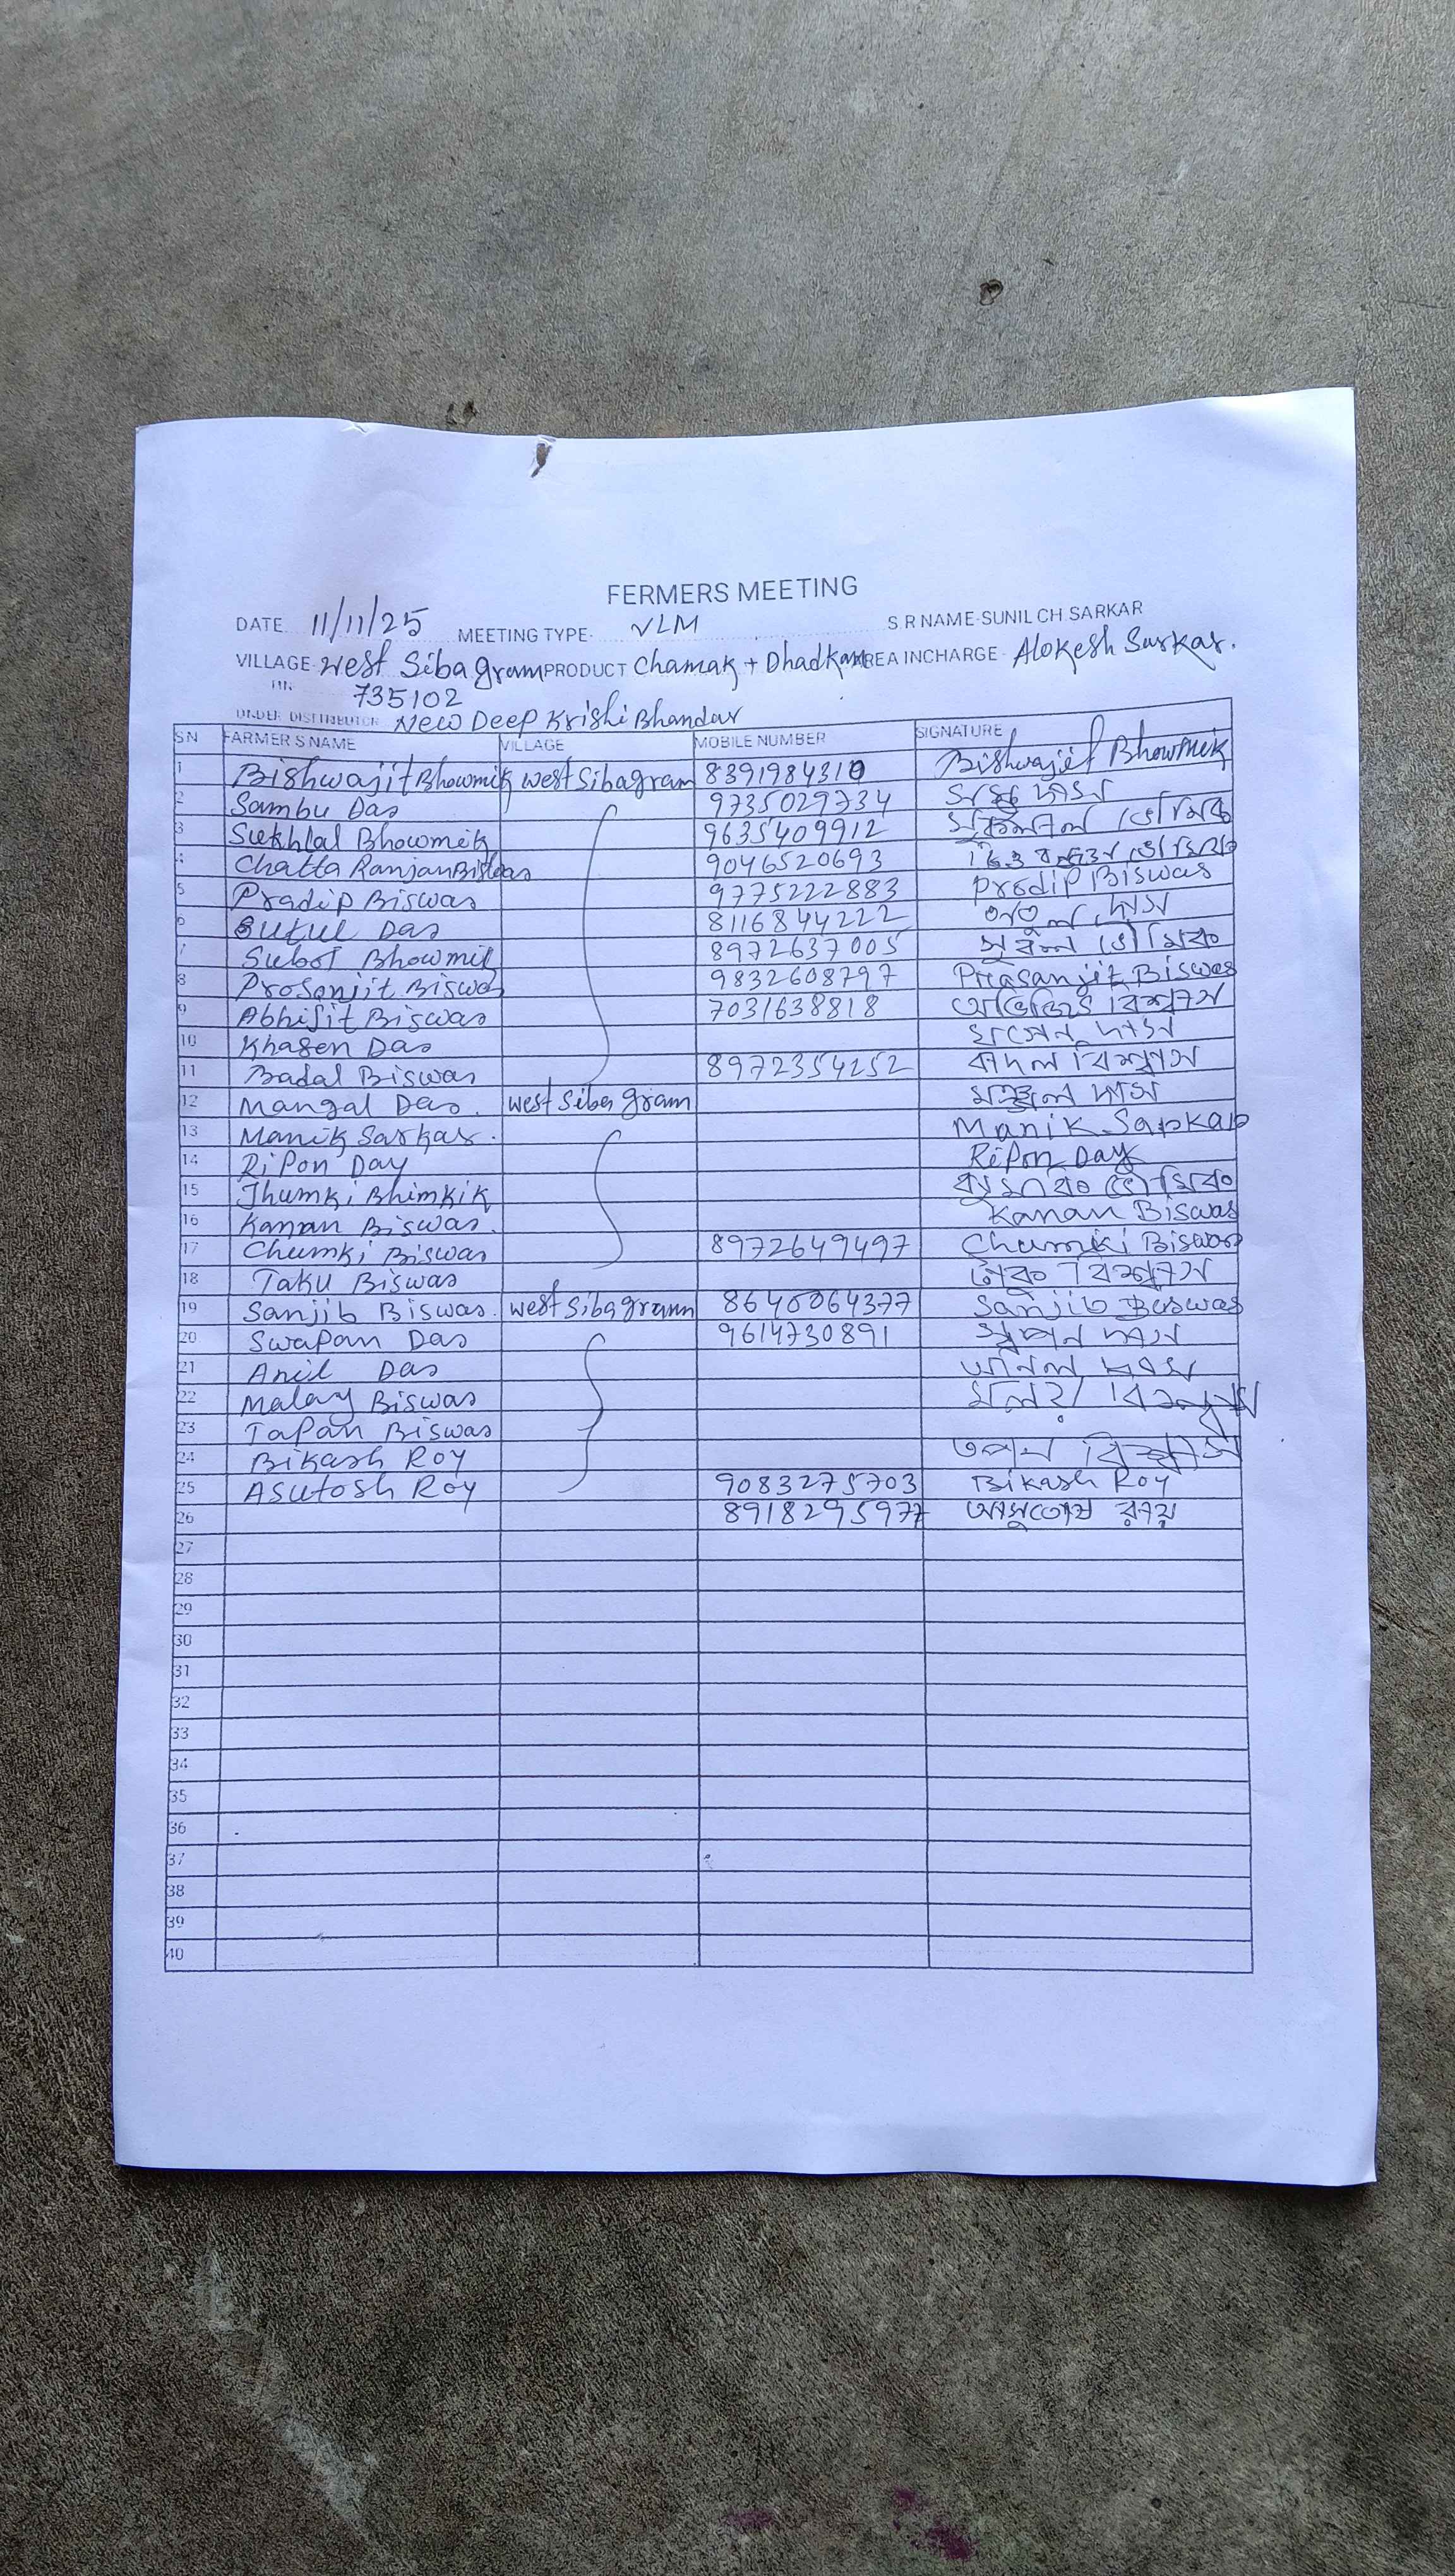 FERMERS MEETING
DATE 11/11/25 MEETING TYPE- VLM S R NAME-SUNIL CH SARKAR
VILLAGE- West Sibagram PRODUCT Chamak + Dhadkan AREA INCHARGE- Alokesh Sarkar.
735102
UNDER DISTRIBUTOR New Deep Krishi Bhandar
SN FARMER'S NAME VILLAGE MOBILE NUMBER SIGNATURE
1 Bishwajit Bhowmik west Sibagram 8391984310 Bishwajit Bhowmik
2 Sambu Das 9735029734 শম্ভু দাস
3 Sukhlal Bhowmik 9635409912 ভৌমিক
4 Chatta Ranjan Biswas 9046520693
5 Pradip Biswas 9775222883 Pradip Biswas
6 Gutul Das 8116844222 দাস
7 Subol Bhowmik 8972637005 সুবল ভৌমিক
8 Prosonjit Biswas 9832608797 Prasanjit Biswas
9 Abhijit Biswas 7031638818 অভিজিৎ বিশ্বাস
10 Khagen Das খগেন দাস
11 Badal Biswas 8972354252 বাদল বিশ্বাস
12 Mangal Das. west Siba gram মঙ্গল দাস
13 Manik Sarkar. Manik Sarkar
14 Ripon Day Ripon Day
15 Jhumki Bhimkik ভৌমিক
16 Kanan Biswas. Kanan Biswas
17 Chumki Biswas 8972649497 Chumki Biswas
18 Taku Biswas বিশ্বাস
19 Sanjib Biswas. west Sibagram 8640064377 Sanjib Biswas
20 Swapan Das 9614730891 স্বপন দাস
21 Anil Das অনিল দাস
22 Malay Biswas মলয় বিশ্বাস
23 Tapan Biswas
24 Bikash Roy তপন বিশ্বাস
25 Asutosh Roy 9083275703 Bikash Roy
26 8918295977 আশুতোষ রায়
27
28
29
30
31
32
33
34
35
36
37
38
39
40